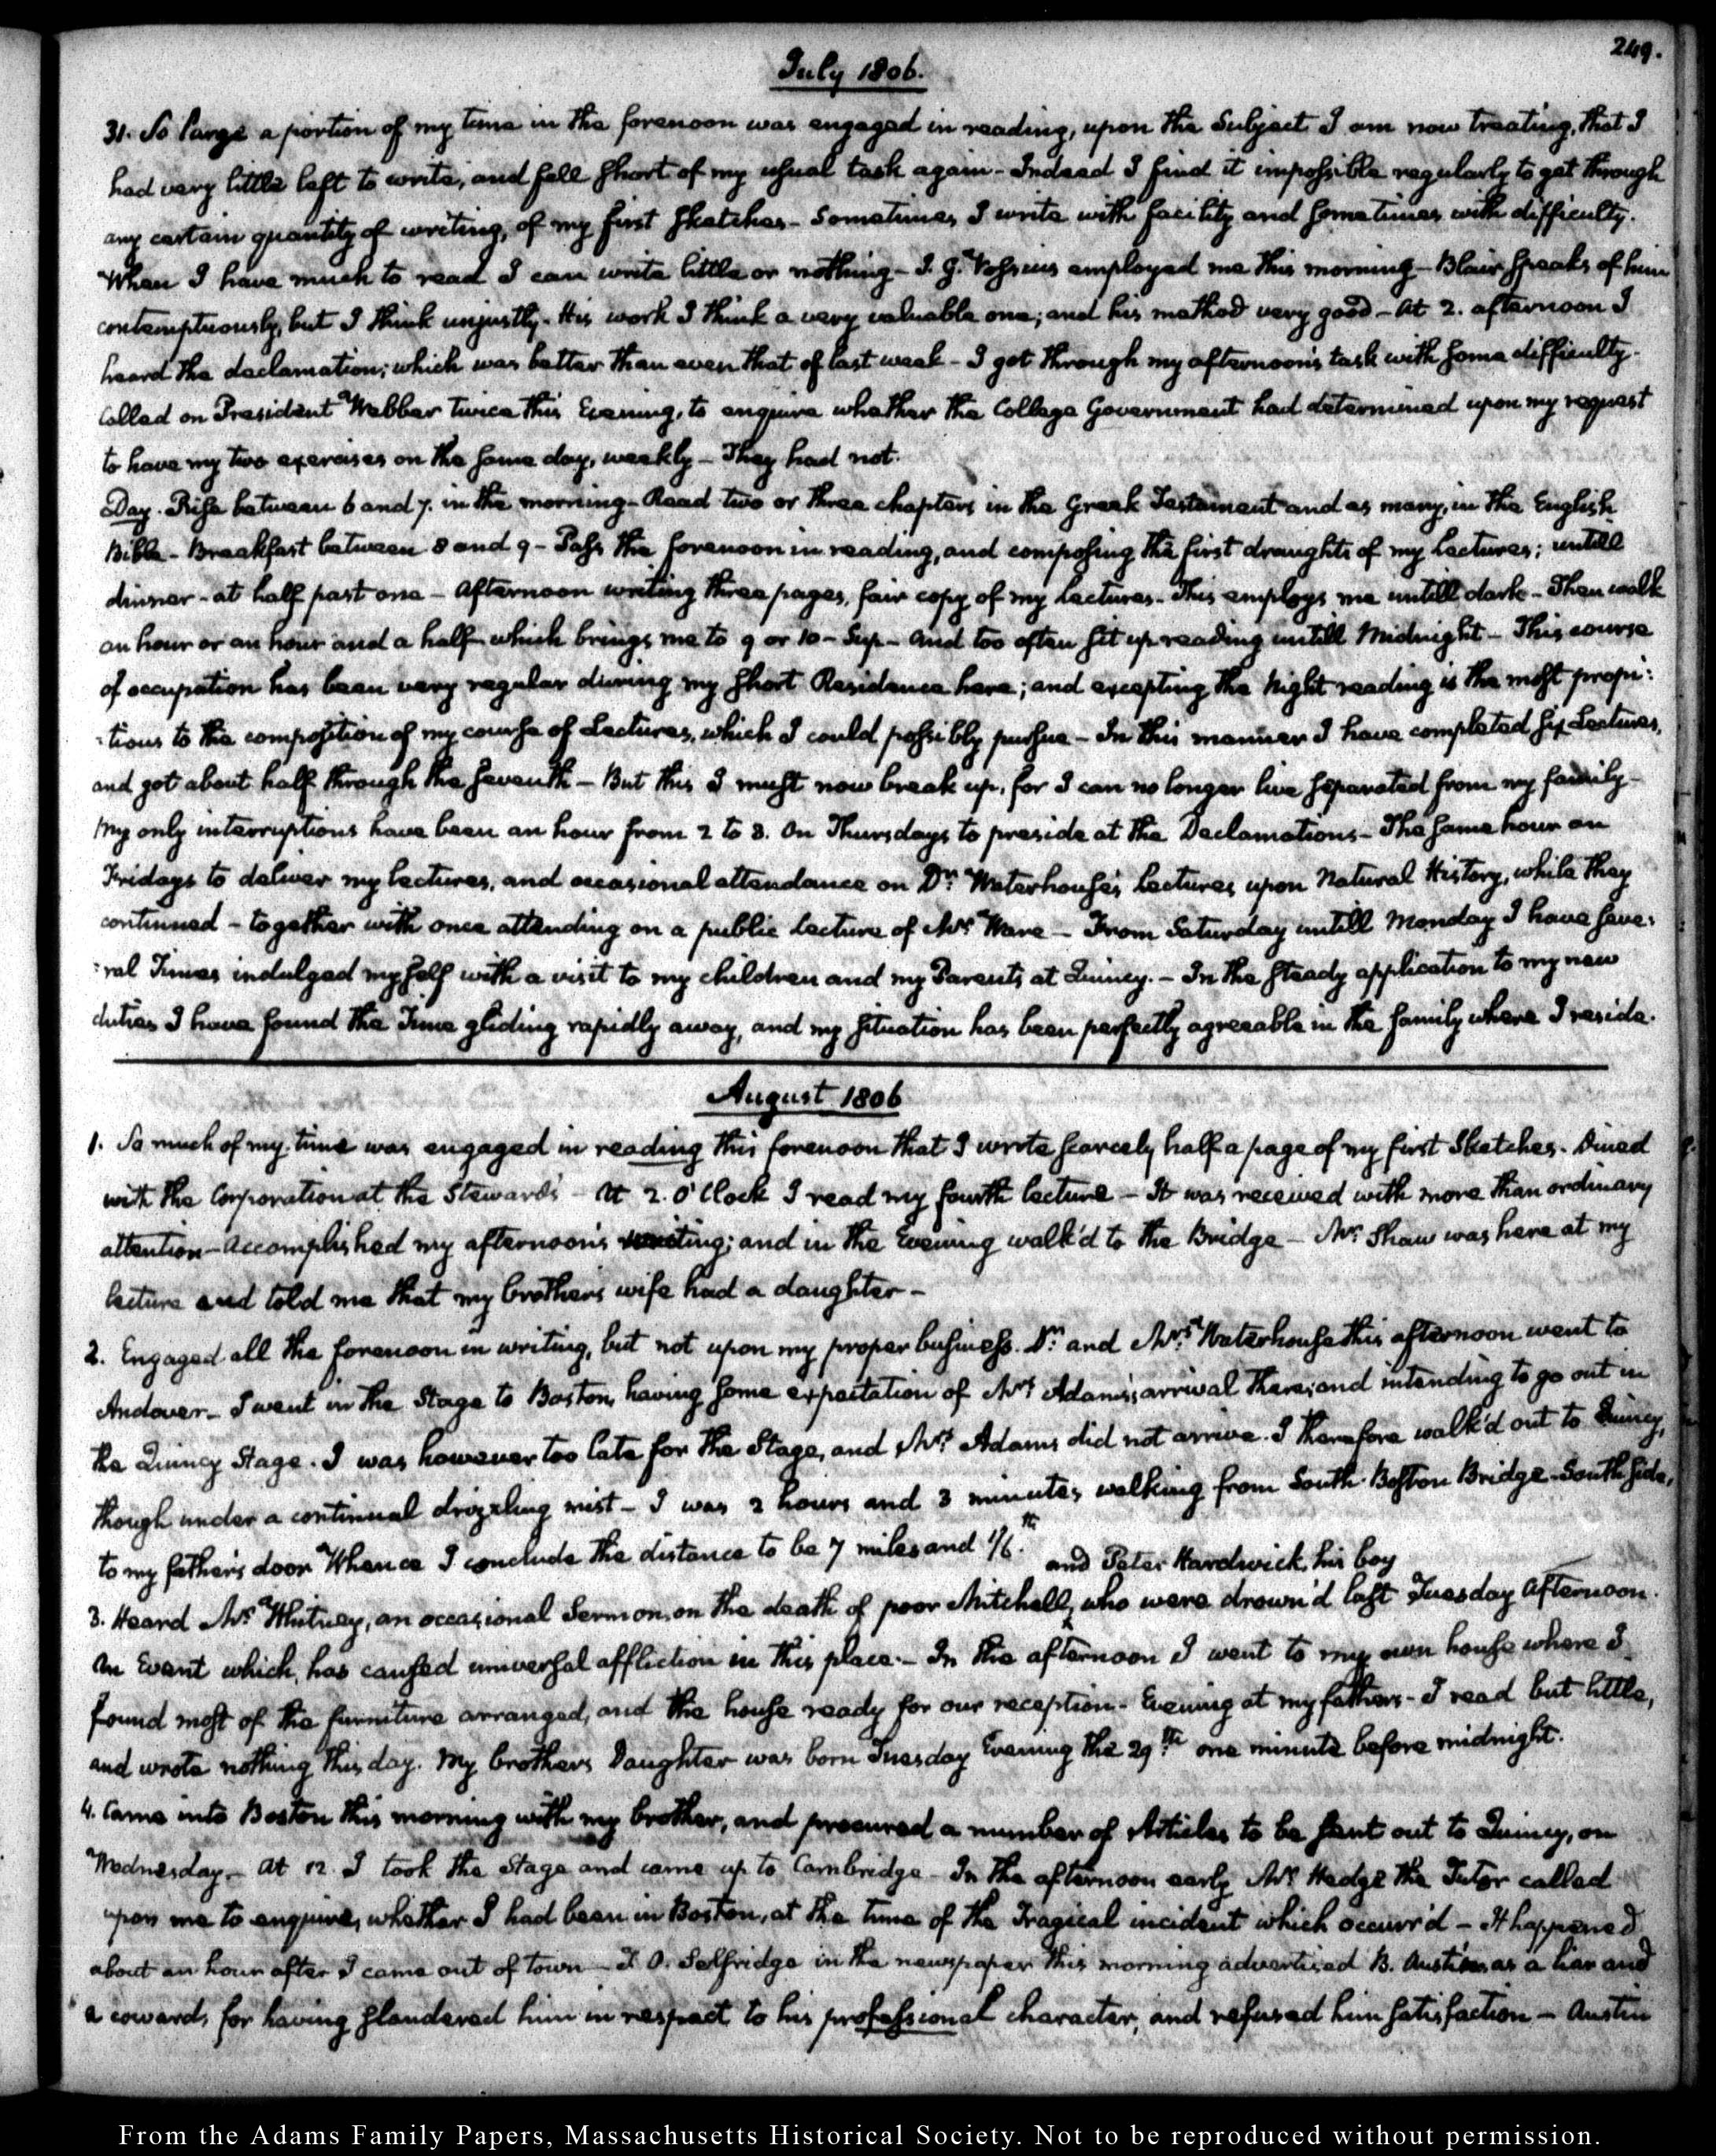 249.
July 1806.
31. So large a portion of my time in the forenoon was engaged in reading, upon the Subject I am now treating, that I
had very little left to write, and fell short of my usual task again - Indeed I find it impossible regularly to get through
any certain quantity of writing, of my first sketches - Sometimes I write with facility and sometimes with difficulty.
When I have much to read I can write little or nothing - I. G. Vossius employed me this morning - Blair speaks of him
contemptuously, but I think unjustly. His work I think a very valuable one; and his method very good - At 2. afternoon I
heard the declamation; which was better than even that of last week - I got through my afternoon's task with some difficulty.
Called on President Webber twice this Evening, to enquire whether the College Government had determined upon my request
to have my two exercises on the same day, weekly - They had not.
Day. Rise between 6 and 7. in the morning - Read two or three chapters in the Greek Testament and as many, in the English
Bible - Breakfast between 8 and 9 - Pass the forenoon in reading, and composing the first draughts of my Lectures; untill
dinner - at half past one - Afternoon writing three pages, fair copy of my Lectures. This employs me untill dark - Then walk
an hour or an hour and a half which brings me to 9 or 10 - Sup - And too often sit up reading untill Midnight - This course
of occupation has been very regular during my short Residence here; and excepting the Night reading is the most propi:
:tious to the composition of my course of Lectures, which I could possibly pursue - In this manner I have completed six Lectures,
and got about half through the seventh - But this I must now break up, for I can no longer live separated from my family -
My only interruptions have been an hour from 2 to 3. On Thursdays to preside at the Declamations - The same hour on
Fridays to deliver my lectures, and occasional attendance on Dr. Waterhouse's Lectures upon Natural History, while they
continued - together with once attending on a public lecture of Mr. Ware - From Saturday untill Monday I have seve:
:ral Times indulged myself with a visit to my children and my Parents at Quincy. - In the steady application to my new
duties I have found the Time gliding rapidly away, and my situation has been perfectly agreeable in the family where I reside.
August 1806
1. So much of my time was engaged in reading this forenoon that I wrote scarcely half a page of my first Sketches. Dined
with the Corporation at the Stewards' - At 2. O'Clock I read my fourth lecture - It was received with more than ordinary
attention - Accomplished my afternoon's writing; and in the Evening walk'd to the Bridge - Mr. Shaw was here at my
lecture and told me that my brother's wife had a daughter -
2. Engaged all the forenoon in writing, but not upon my proper business. Dr. and Mrs. Waterhouse this afternoon went to
Andover - I went in the Stage to Boston, having some expectation of Mrs. Adams's arrival there; and intending to go out in
the Quincy Stage. I was however too late for the Stage, and Mrs. Adams did not arrive. I therefore walk'd out to Quincy,
though under a continual drizzling mist - I was 2 hours and 3 minutes walking from South-Boston Bridge - South side,
to my father's door Whence I conclude the distance to be 7 miles and 1/6.th
and Peter Hardwick, his boy
3. Heard Mr. Whitney, an occasional Sermon, on the death of poor Mitchell, who were drown'd last Tuesday Afternoon.
An Event which, has caused universal affliction in this place. - In the afternoon I went to my own house where I
found most of the furniture arranged, and the house ready for our reception - Evening at my fathers - I read but little,
and wrote nothing this day. My brothers Daughter was born Tuesday Evening the 29th. one minute before midnight.
4. Came into Boston this morning with my brother, and procured a number of Articles to be sent out to Quincy, on
Wednesday. - At 12. I took the Stage and came up to Cambridge - In the afternoon early Mr. Hedge the Tutor called
upon me to enquire, whether I had been in Boston, at the time of the Tragical incident which occurr'd - It happened
about an hour after I came out of town - T. O. Selfridge in the newspaper this morning advertised B. Austin as a liar and
a coward, for having slandered him in respect to his professional character, and refused him satisfaction - Austin
From the Adams Family Papers, Massachusetts Historical Society. Not to be reproduced without permission.